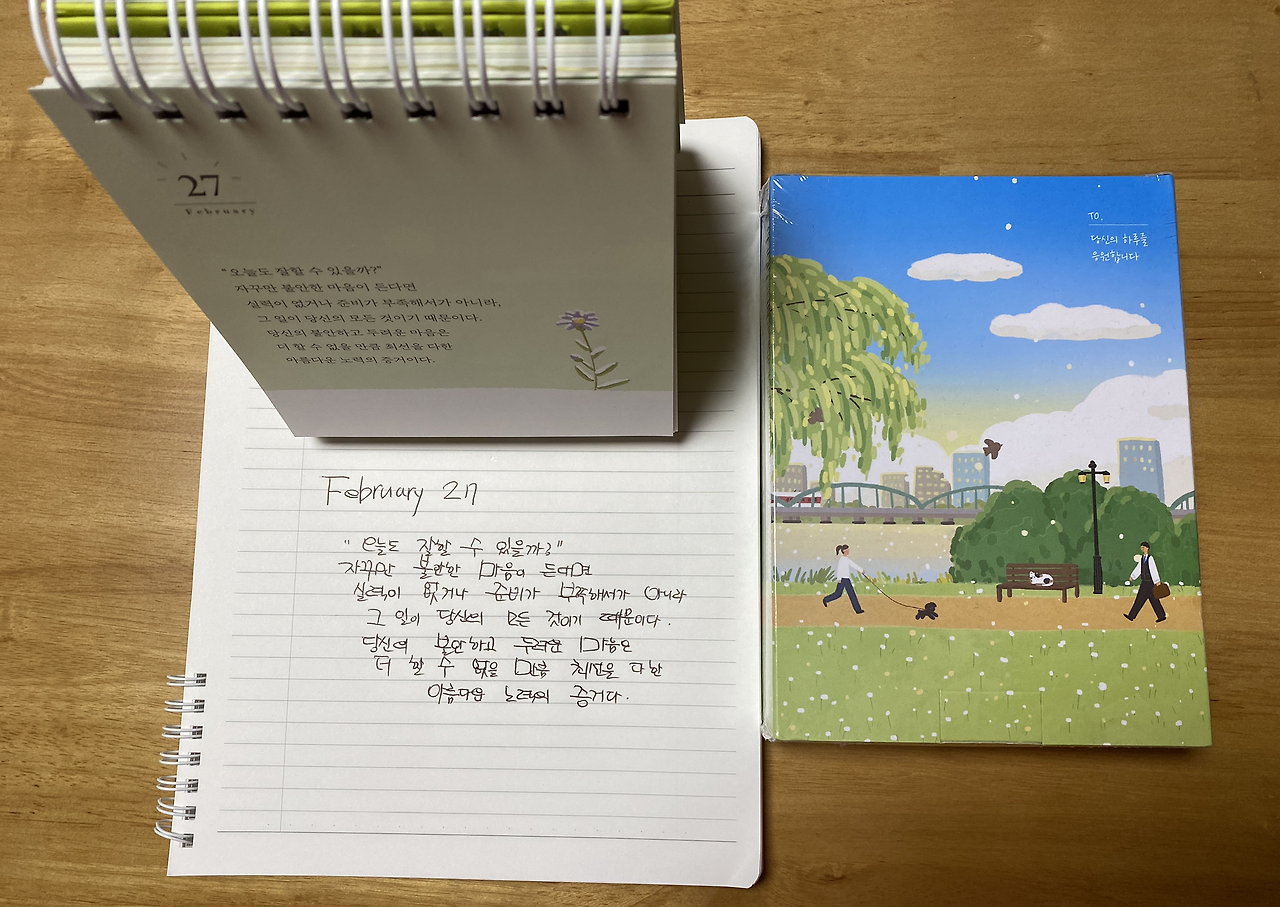 27
February
"오늘도 잘할 수 있을까?"
자꾸만 불안한 마음이 든다면
실력이 없거나 준비가 부족해서가 아니라,
그 일이 당신의 모든 것이기 때문이다.
당신의 불안하고 두려운 마음은
더 할 수 없을 만큼 최선을 다한
아름다운 노력의 증거이다.
February 27
"오늘도 잘할 수 있을까?"
자꾸만 불안한 마음이 든다면
실력이 없거나 준비가 부족해서가 아니라
그 일이 당신의 모든 것이기 때문이다.
당신의 불안하고 두려운 마음은
더 할 수 없을 만큼 최선을 다한
아름다운 노력의 증거다.
TO.
당신의 하루를
응원합니다